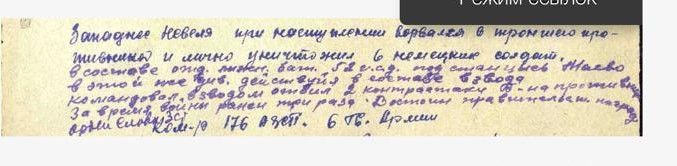 РЕЖИМ ССЫЛОК
Западнее Невеля при наступлении ворвался в траншею про-
тивника и лично уничтожил 6 немецких солдат.
в составе отд. бат. с.д. под станцией Маево
в этой же див. действуя в составе взвода
командовал взводом отбил 2 контратаки пр-ка противника
За время войны ранен три раза. Достоин правительст. наград
Ком-р 176 АЗСП. 6 Гв. Армии